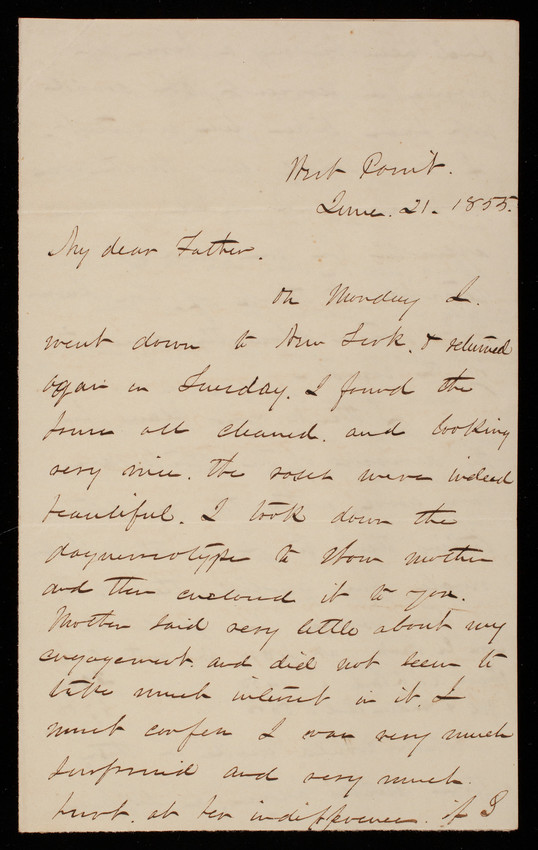 West Point.
June. 21. 1855.
My dear Father.
On Monday I.
went down to New York. & returned
again on Tuesday. I found the
house all cleaned. and looking
very nice. the roses were indeed
beautiful. I took down the
daguerreotype to show mother
and then enclosed it to you.
Mother said very little about my
engagement. and did not seem to
take much interest in it. I
must confess I was very much
surprised and very much.
hurt. at her indifference. if I